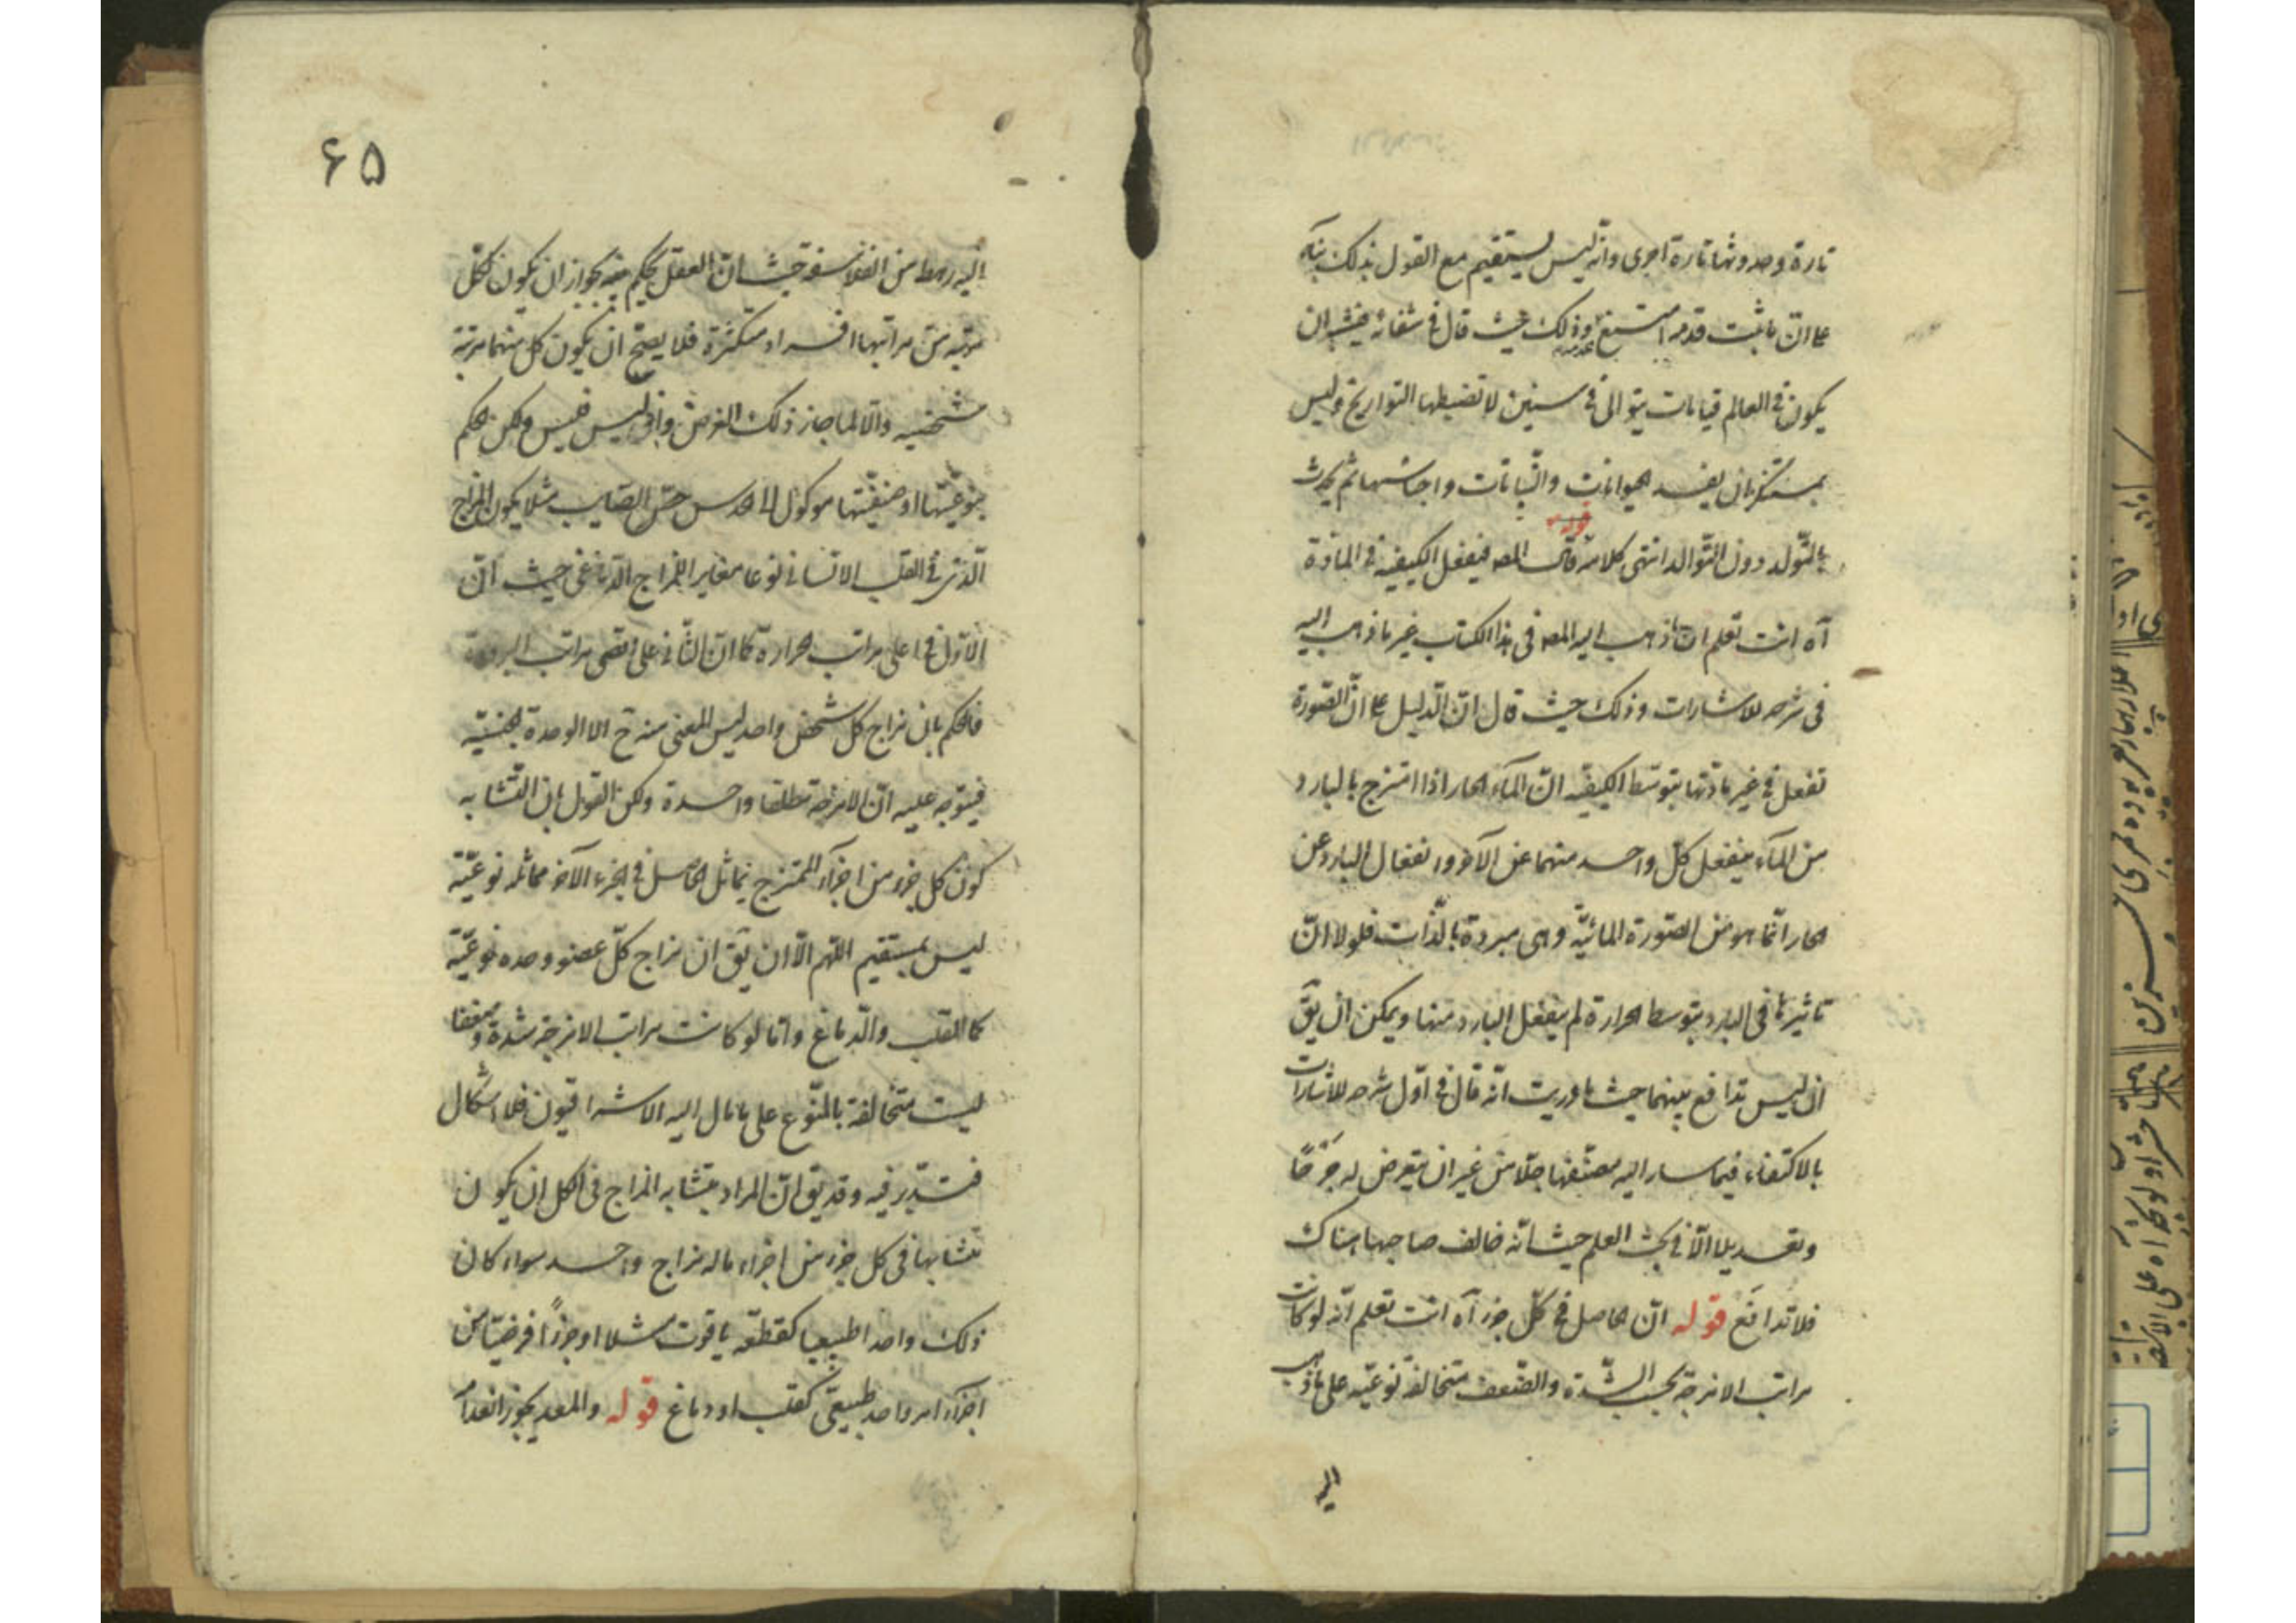 تارة وحدوثها تارة اخرى وانّه ليس يستقيم مع القول بذلك بناء
على انّ ما ثبت قدمه امتنع عدمه وذلك حيث قال في شفائه فيشبه ان
يكون في العالم قيامات يتوالى في سنين لا تضبطها التواريخ وليس
بمستنكر ان يفسد الحيوانات والنّباتات واجناسها ثم يحدث
بالتّولد دون التّوالد انتهى كلامه قوله قال المصه فيفعل الكيفيه في المادّة
آه انت تعلم ان ما ذهب اليه المصه في هذا الكتاب غير ما ذهب اليه
في شرحه للاشارات وذلك حيث قال انّ الدّليل على انّ الصّورة
تفعل في غير مادّتها بتوسّط الكيفيّه انّ المآء الحار اذا امتزج بالبارد
من المآء ينفعل كلّ واحد منهما عن الآخر وانفعال البارد عن
الحار انّما هو من الصّورة المائيّة وهي مبردة بالذّات فلولا انّ
تاثيرها في البارد بتوسط الحرارة لم ينفعل البارد منها ويمكن ان يق
ان ليس تدافع بينهما حيث ما دريت انّه قال في اوّل شرحه للاشارات
بالاكتفاء فيما سار اليه مصنّفها جلّا من غير ان يتعرض له جرحًا
وتعديلا الّا في بحث العلم حيث انّه خالف صاحبها هناك
فلا تدافع قوله انّ الحاصل في كلّ جزء آه انت تعلم انّه لو كانت
مراتب الامزجة بحسب الشّدة والضّعف متخالفة نوعيّه على ما ذهب
اليه
۶۵
اليه رهط من الفلاسفه حيث انّ العقل يحكم بجواز ان يكون لكلّ
مرتبه من مراتبها افراد متكثرة فلا يصحّ ان يكون كل منهما مرتبة
شخصيه والّا لما جاز ذلك الفرض واذ ليس فليس ولكن الحكم
بنوعيّتها او صنفيّتها موكول الى الحدس حتّى الصايب مثلا يكون المزاج
الّذي في القلب الانساني نوعا مغاير المزاج الدّماغي حيث انّ
الاوّل في اعلى مراتب الحرارة كما ان الثّاني على اقصى مراتب البرودة
فالحكم بان مزاج كل شخص واحد ليس المعنى منه ح الا الوحدة الجنسيّه
فيتوجه عليه انّ الامزجة مطلقا واحدة ولكن القول بان التّشابه
كون كل جزء من اجزآء الممتزج يماثل الحاصل في الجزء الآخر مماثله نوعيّة
ليس بمستقيم اللّهم الّا ان يق ان مزاج كلّ عضو وحده نوعيّة
كالقلب والدّماغ وامّا لو كانت مراتب الامزجة شدة وضعفا
ليست متخالفة بالنّوع على ما مال اليه الاشراقيون فلا اشكال
فتدبّر فيه وقد يق انّ المراد بتشابه المزاج في الكل ان يكون
تشابها في كل جزء من اجزاء ماله مزاج واحد سواء كان
ذلك واحدا طبيعيا كقطعة ياقوت مثلا او جزءًا فرضيّا من
اجزآء امر واحد طبيعيّ كقلب او دماغ قوله والمعد يجوز انعدام